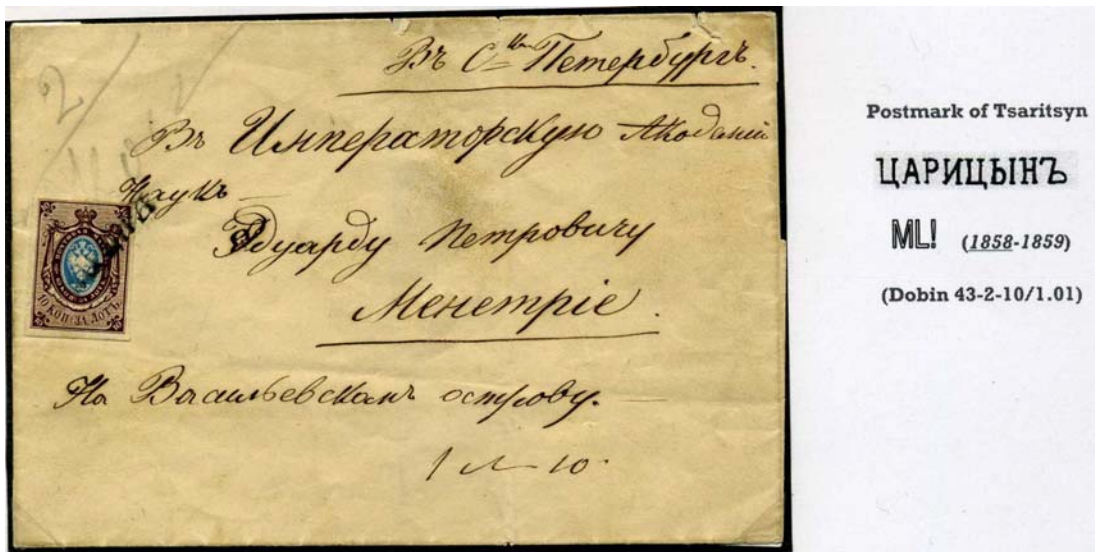 Въ С. Петербургъ.
Въ Императорскую Академiй
Наукъ
Эдуарду Петровичу
Менетріе.
На Васильевскомъ острову.
10 КОП. ЗА ЛОТЪ
Postmark of Tsaritsyn
ЦАРИЦЫНЪ
ML! (1858-1859)
(Dobin 43-2-10/1.01)